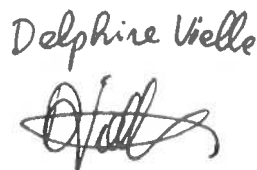 Delphine Vielle